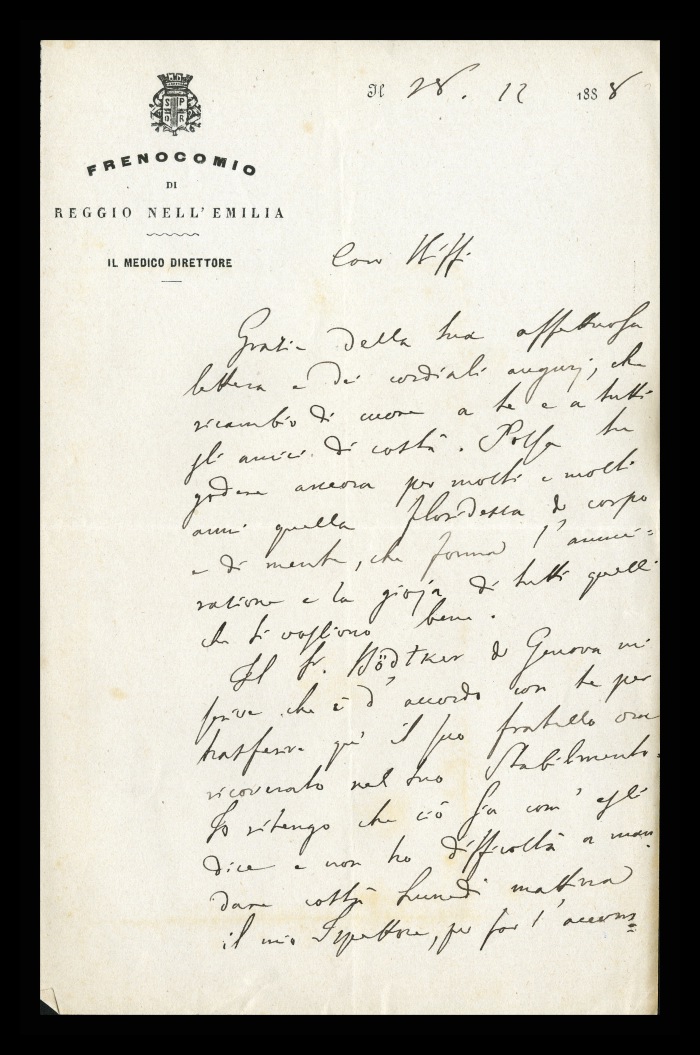 Il 28. 12 1888
S P
Q R
FRENOCOMIO
DI
REGGIO NELL'EMILIA
IL MEDICO DIRETTORE
Caro Biffi
Grazie della tua affettuosa
lettera e dei cordiali augurj, che
ricambio di cuore a te e a tutti
gli amici di costà. Possa tu
godere ancora per molti e molti
anni quella floridezza di corpo
e di mente, che forma l'ammi=
razione e la gioja di tutti quelli
che ti vogliono bene.
Il Sr. Bödtker di Genova mi
scrive che è d'accordo con te per
trasferire quì il suo fratello ora
ricoverato nel tuo Stabilimento.
Io ritengo che ciò sia com'egli
dice e non ho difficoltà a man
dare costà Lunedì mattina
il mio Ispettore, per far l'accom=